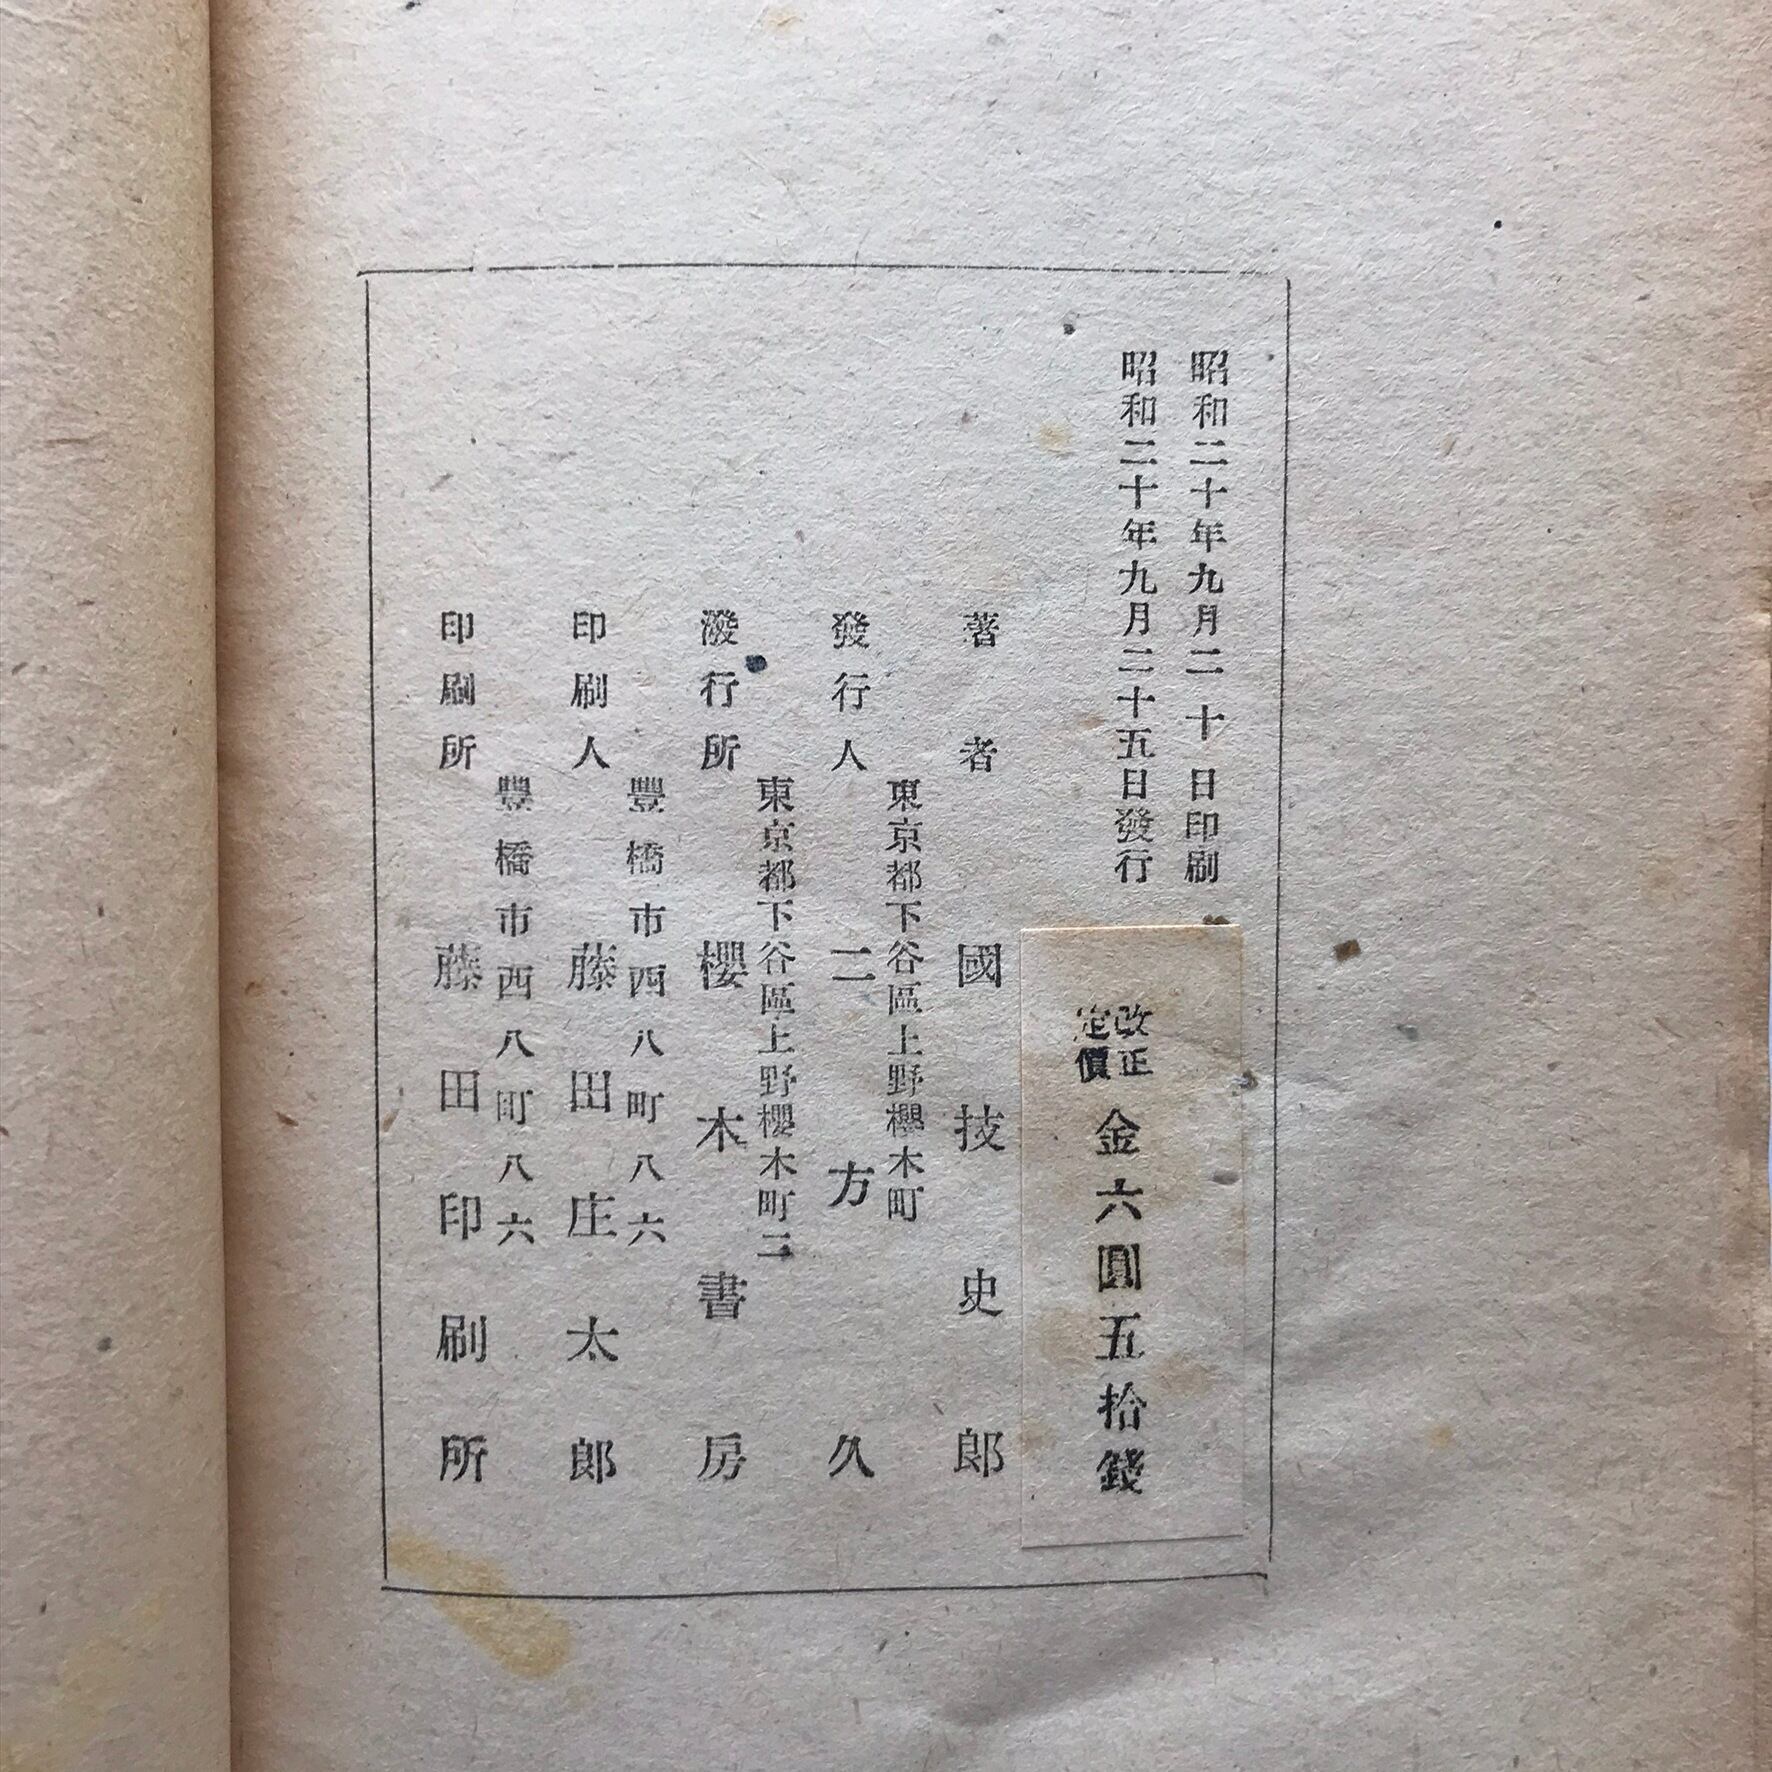 昭和二十年九月二十日印刷
昭和二十年九月二十五日發行
改正
定價
金六圓五拾錢
著者
國技史郎
東京都下谷區上野櫻木町
發行人
二方久
東京都下谷區上野櫻木町二
潑行所
櫻木書房
豐橋市西八町八六
印刷人
藤田庄太郎
豐橋市西八町八六
印刷所
藤田印刷所